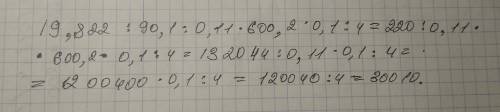 19,822 : 90,1 : 0,11 · 600,2 · 0,1 : 4 = 220 : 0,11 ·
· 600,2 · 0,1 : 4 = 132044 : 0,11 · 0,1 : 4 = ·
= 6200400 · 0,1 : 4 = 120040 : 4 = 30010.